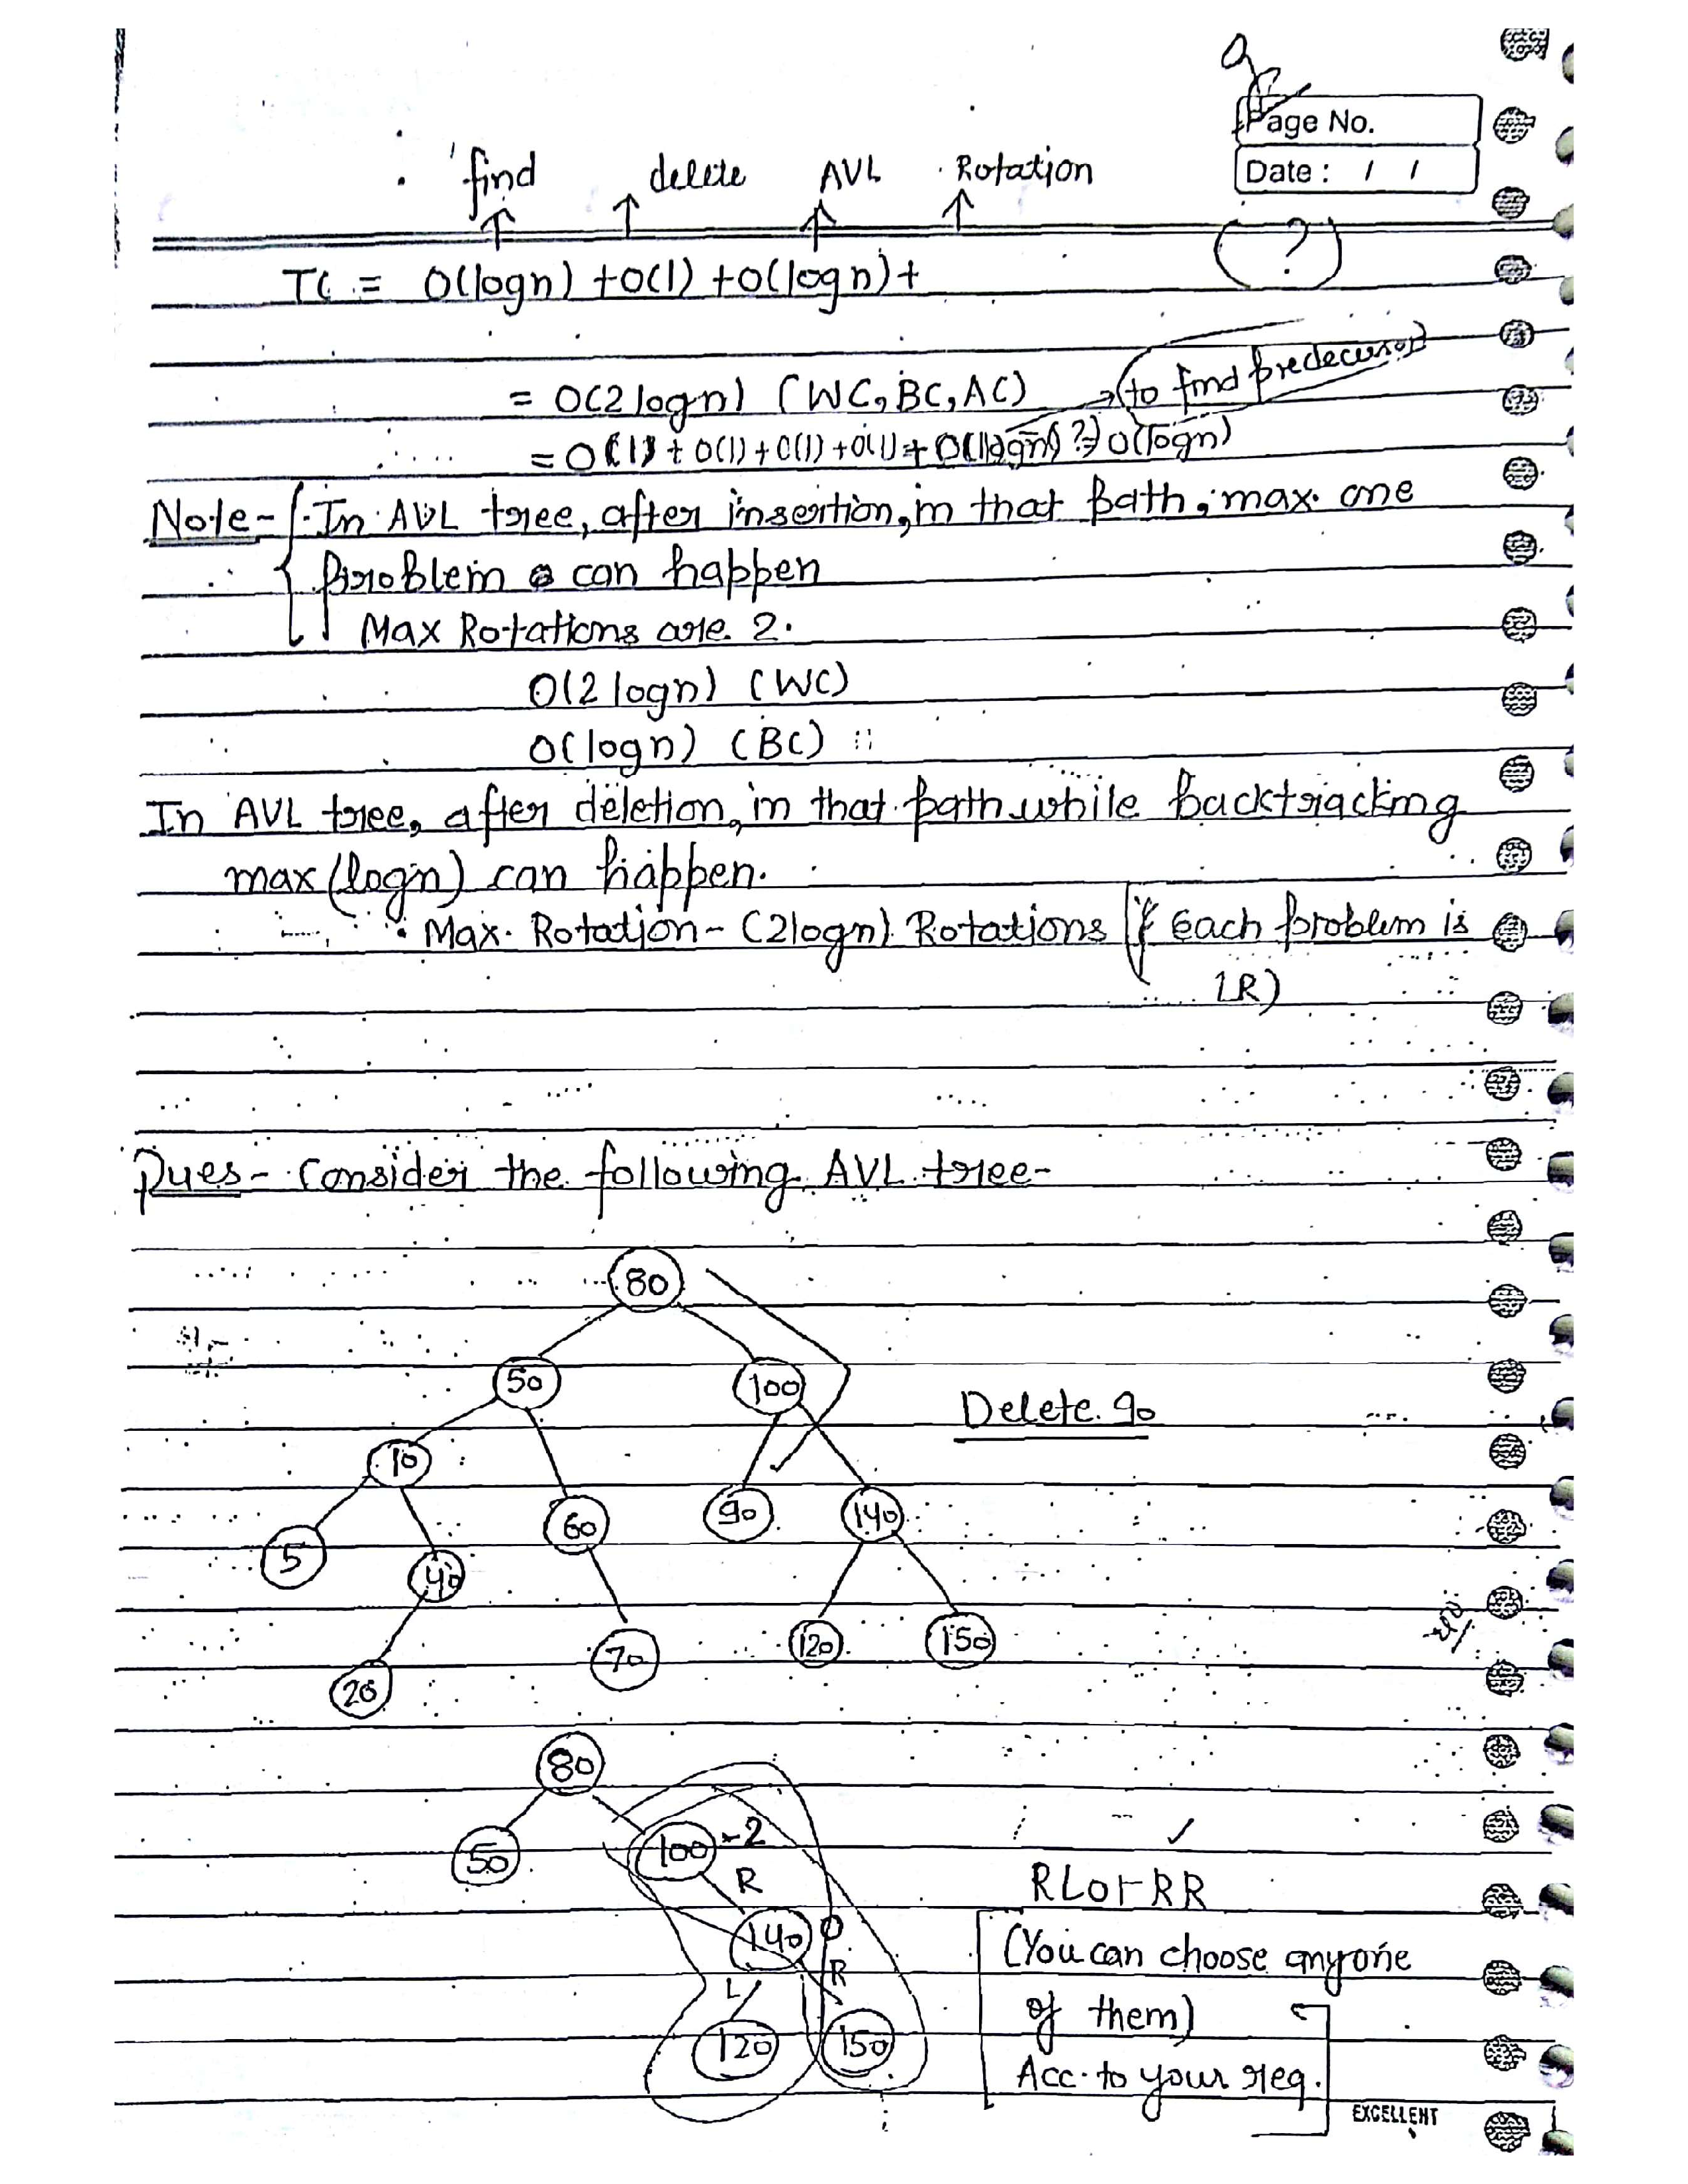 Page No.
Date : / /
find delete AVL Rotation
TC = O(logn) +O(1) +O(logn)+ (?)
= O(2logn) (WC, BC, AC) → (to find predecussor)
= O(1) + O(1) + O(1) + O(1) + O(logn) ?⇒ O(logn)
Note- In AVL tree, after insertion, in that path, max. one
problem can happen
Max Rotations are 2.
O(2logn) (WC)
O(logn) (BC)
In AVL tree, after deletion, in that path while backtracking
max (logn) can happen.
Max. Rotation- (2logn) Rotations (if each problem is
LR)
Ques- Consider the following AVL tree-
80
50 100
Delete 90
10
60 90 140
5 40
120 150
70
20
80
50 100 -2
R
RL or RR
140 0
(You can choose anyone
L R
of them)
120 150
Acc. to your req.
EXCELLENT